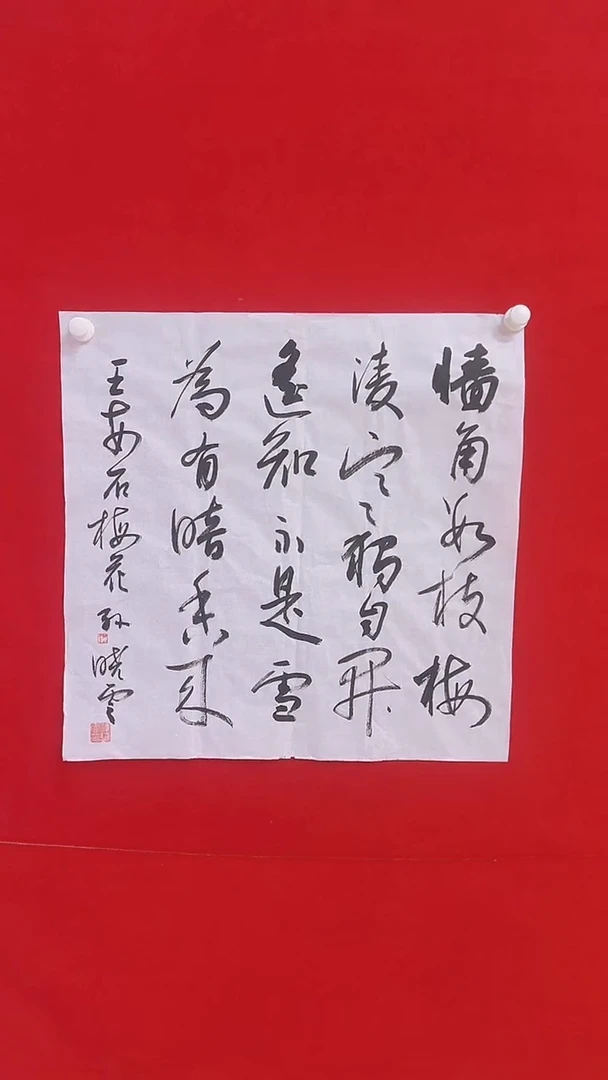 墙角数枝梅
凌寒独自开
遥知不是雪
为有暗香来
王安石梅花 孙晓云